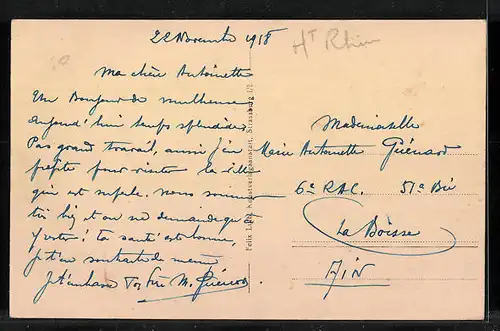 22 Novembre 1918
Ht Rhin
Ma chère Antoinette
Un Bonjour de mulhouse
aujourd'hui temps splendide.
Pas grand travail, aussi j'en
profite pour visiter la ville
qui est superbe. nous sommes
très bien et on ne demande qu'à
y rester. ta santé est bonne,
je t'en souhaite de même
je t'embrasse Ton frère M. Guénard
Felix Luib, Kunstverlagsanstalt, Strassburg i/E
Mademoiselle
Marie Antoinette Guénard
6e RAC. 51e Bie
La Boisse
AIN